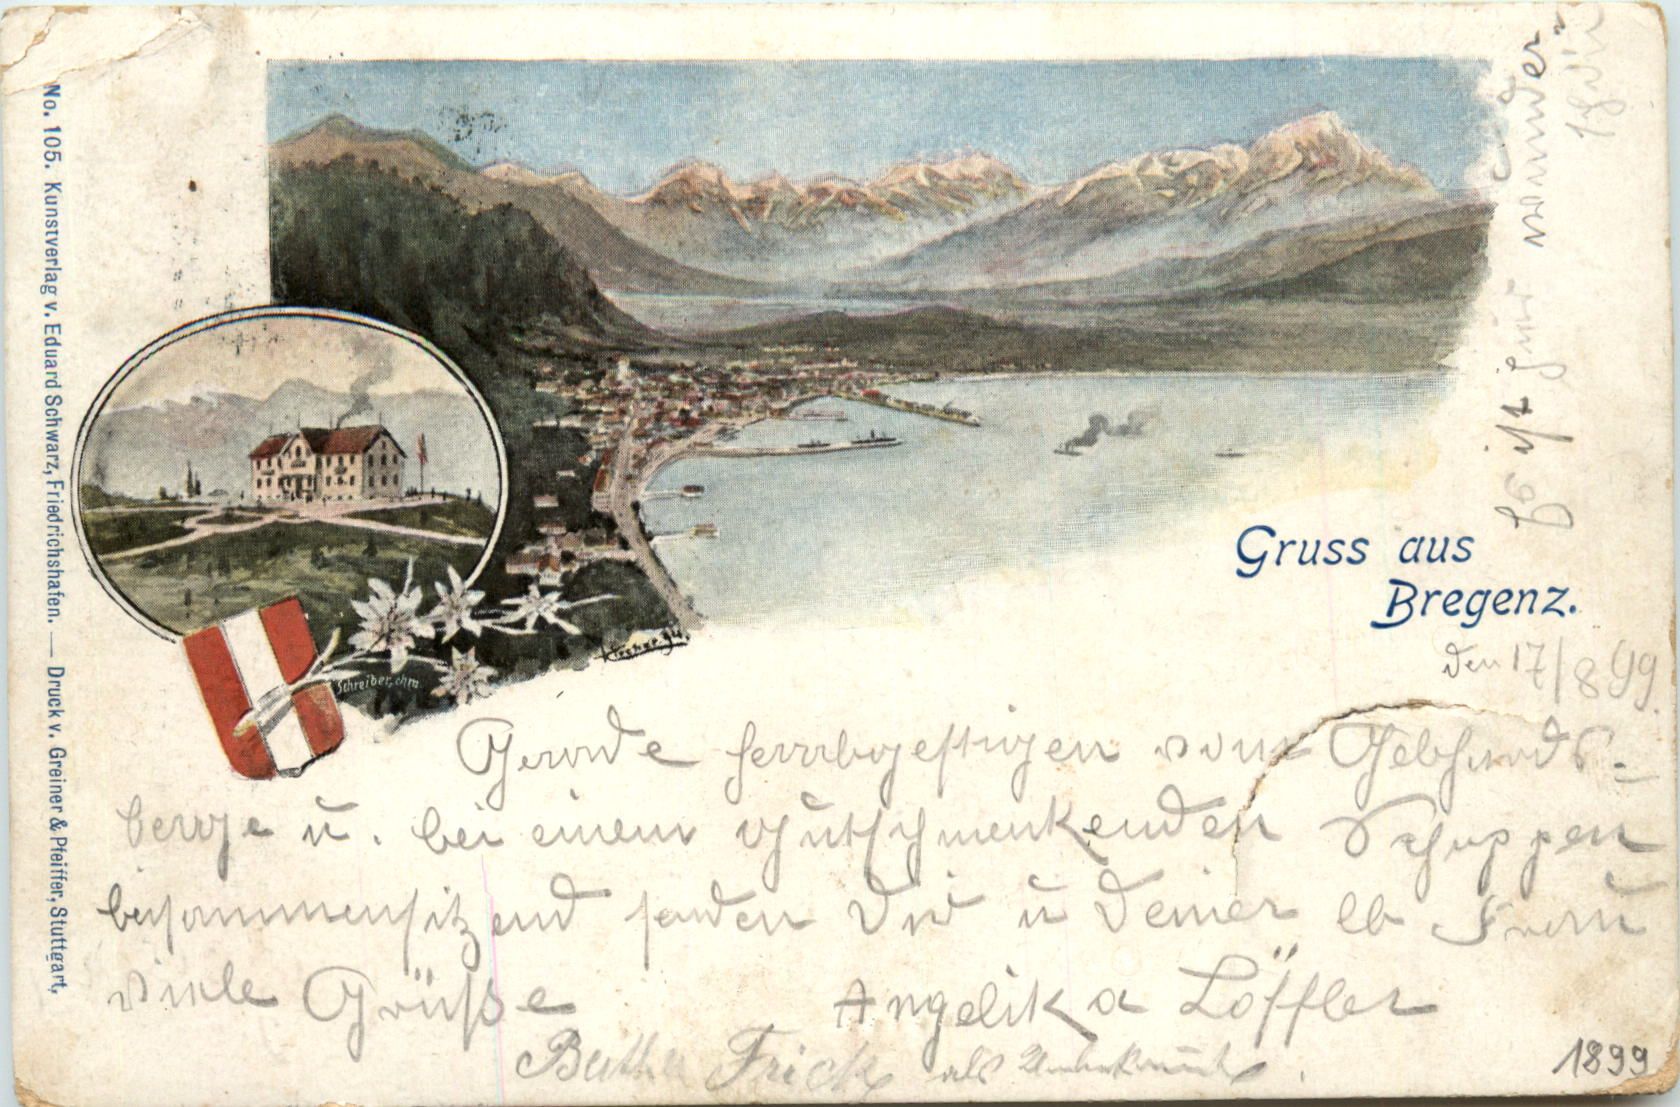 No. 105. Kunstverlag v. Eduard Schwarz, Friedrichshafen. — Druck v. Greiner & Pfeiffer, Stuttgart.
Es ist heut wunder-
schön
Gruss aus
Bregenz.
Schreiber, chro
den 17/8 99.
Gerade herabgestiegen vom Gebhards-
berge u. bei einem gutschmeckenden Schoppen
beisammensitzend senden Dir u Deiner lb Frau
viele Grüße Angelika Löffler
Bertha Frick als Unbekannte.
1899